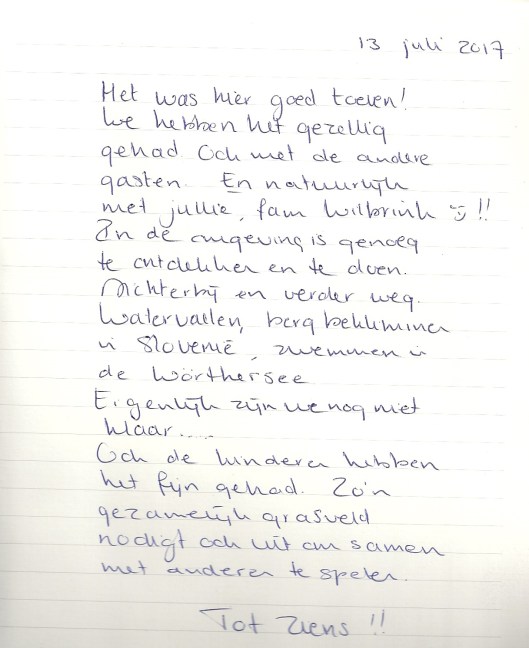 13 juli 2017
Het was hier goed toeven!
We hebben het gezellig
gehad. Ook met de andere
gasten. En natuurlijk
met jullie, fam Wilbrink !!
In de omgeving is genoeg
te ontdekken en te doen.
Dichterbij en verder weg.
Watervallen, berg beklimmen
in Slovenië, zwemmen in
de Wörthersee
Eigenlijk zijn we nog niet
klaar.....
Ook de kinderen hebben
het fijn gehad. Zo'n
gezamelijk grasveld
nodigt ook uit om samen
met anderen te spelen.
Tot ziens !!